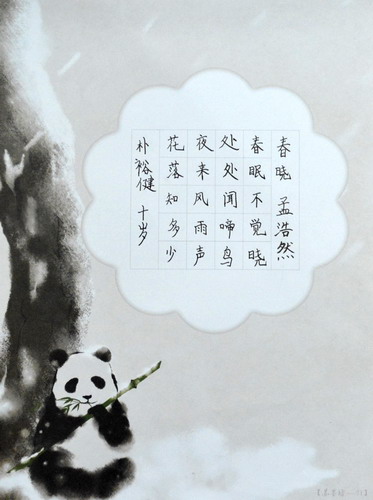 春晓 孟浩然
春眠不觉晓
处处闻啼鸟
夜来风雨声
花落知多少
朴裕健 十岁